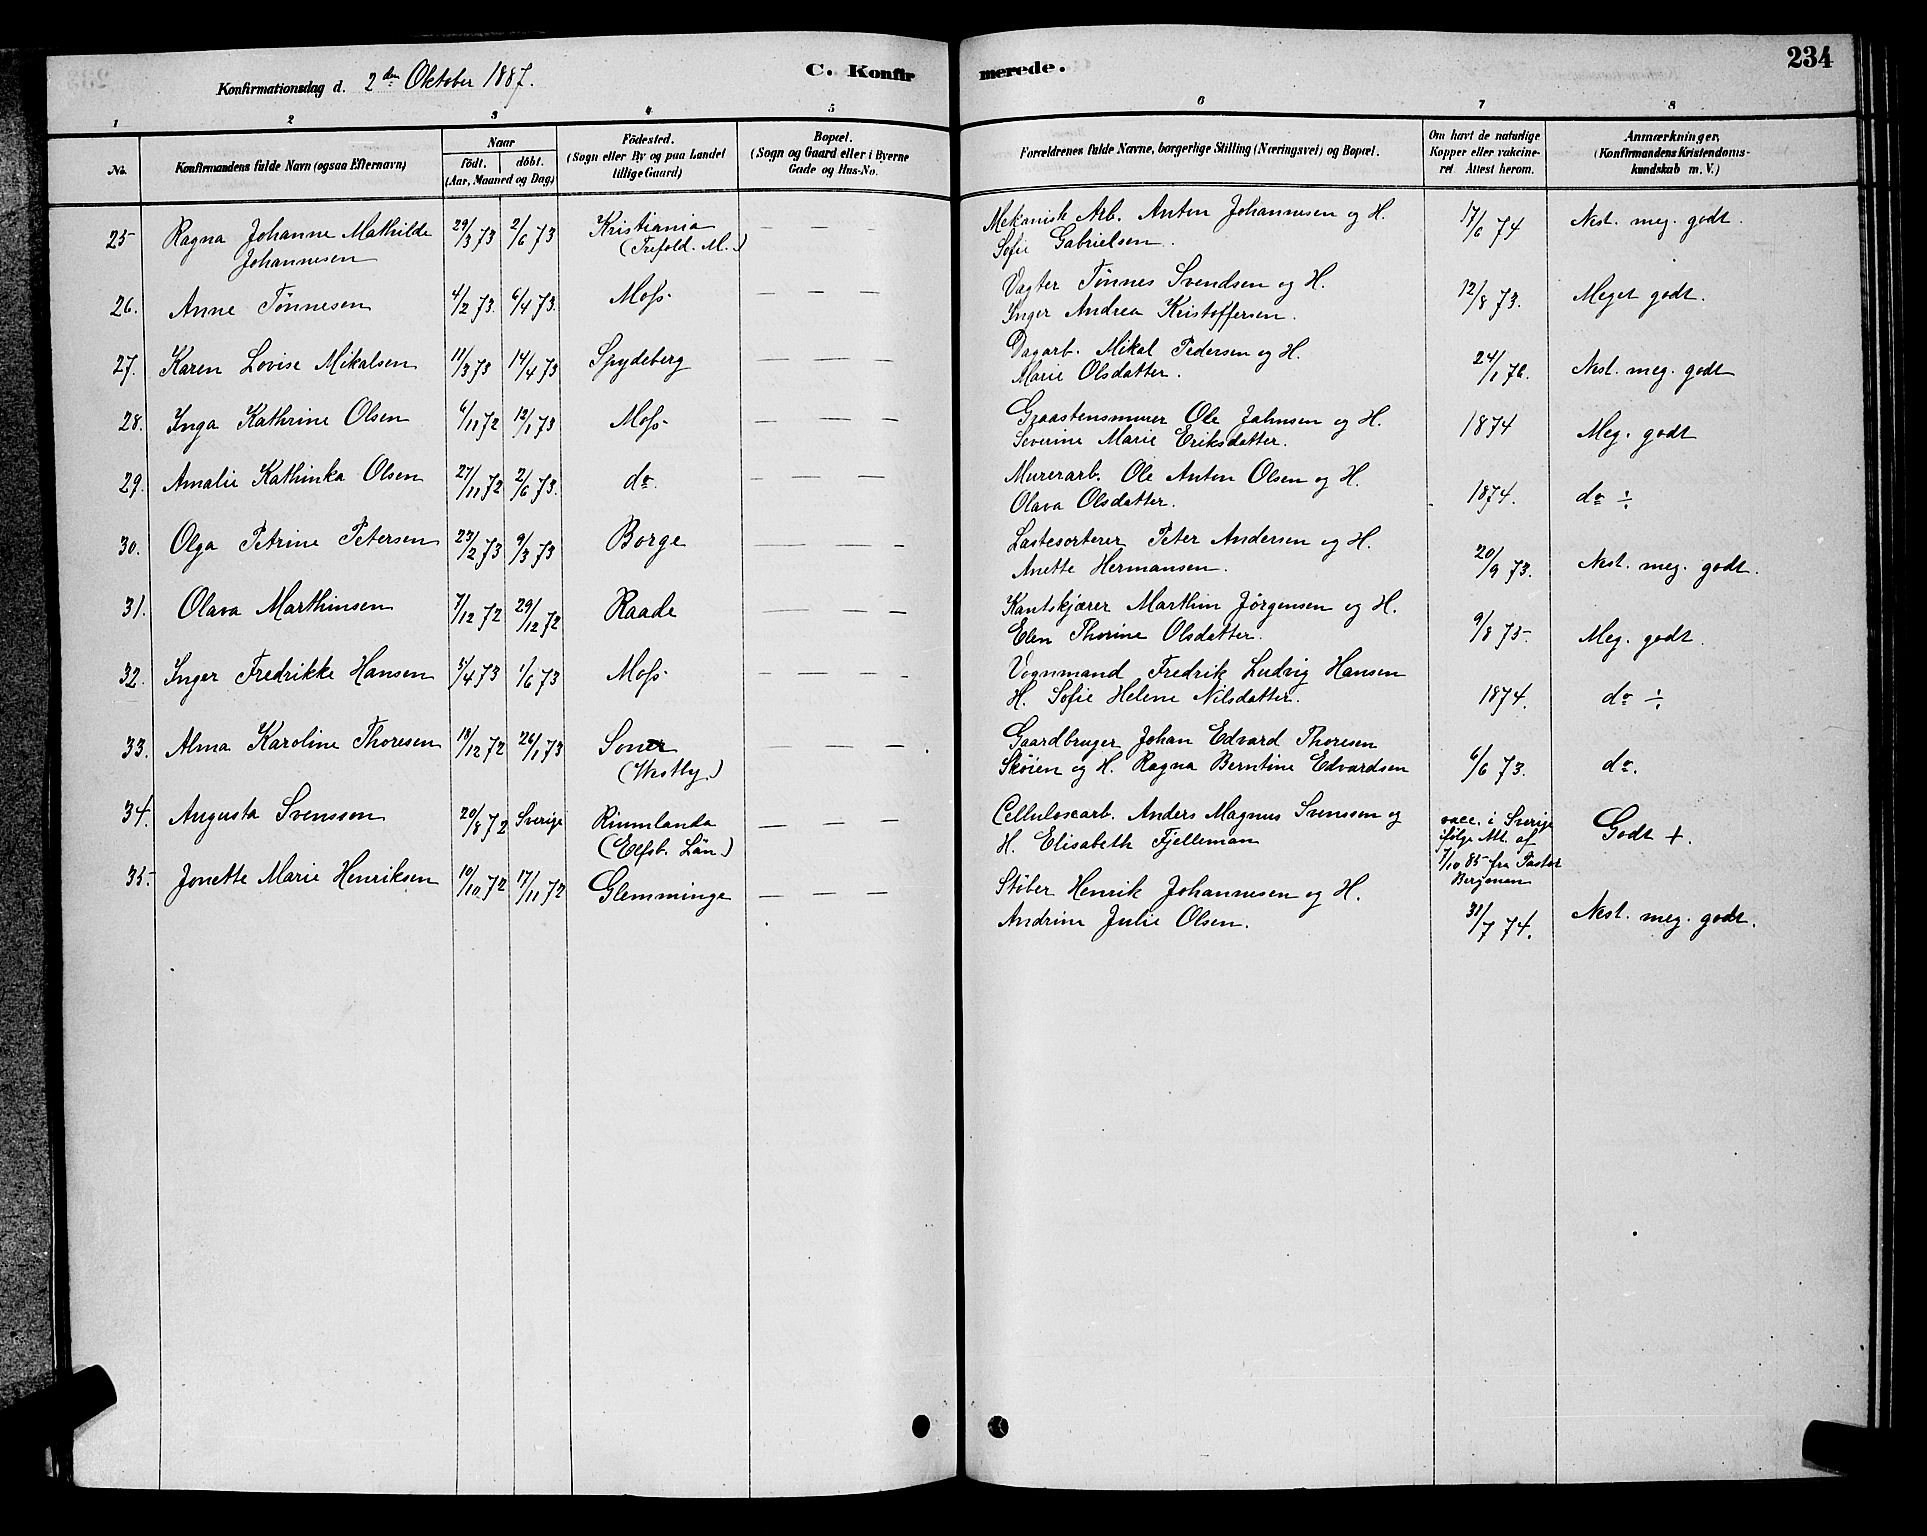 Konfirmationsdag d. 2den Oktober 1887.
C. Konfir
merede.
234
1 2 3 4 5 6 7 8
No. Konfirmandens fulde Navn (ogsaa Efternavn) Naar födt. döbt. (Aar, Maaned og Dag) Födested. (Sogn eller By og paa Landet tillige Gaard) Bopæl. (Sogn og Gaard eller i Byerne Gade og Hus-No. Forældrenes fulde Navne, borgerlige Stilling (Næringsvei) og Bopæl. Om havt de naturlige Kopper eller vakcineret Attest herom. Anmærkninger, (Konfirmandens Kristendomskundskab m. V.)
25 Ragna Johanne Mathilde 29/3 73 2/6 73 Kristiania — — — Mekanisk Arb. Anton Johannesen og H. 17/6 74 Nest. meg. godt.
Johannesen (Trefold. M.) Sofie Gabrielsen.
26. Anne Tönnesen 4/2 73. 6/4 73. Moss — — — Vagter Tönnes Svendsen og H. 12/8 73. Meget godt.
Inger Andrea Kristoffersen.
27. Karen Lovise Mikalsen 11/3 73 14/4 73 Spydeberg — — — Dagarb. Mikal Pedersen og H. 24/1 76. Nest. meg. godt
Marie Olsdatter.
28. Inga Kathrine Olsen 6/11 72 12/1 73 Moss — — — Graastensmurer Ole Jahnsen og H. 1874 Meg. godt
Severine Marie Eriksdatter.
29. Amalie Kathinka Olsen 27/11 72 2/6 73. do. — — — Murerarb. Ole Anton Olsen og H. 1874. do ÷
Olava Olsdatter.
30. Olga Petrine Petersen 23/2 73 9/3 73 Borge — — — Lastesorterer Peter Andersen og H. 20/9 73. Nest. meg. godt.
Anette Hermansen.
31. Olava Marthinsen 7/12 72 29/12 72 Raade — — — Kantskjærer Marthin Jörgensen og H. 9/8 75 Meg. godt.
Elen Thorine Olsdatter.
32. Inger Fredrikke Hansen 5/4 73 1/6 73 Moss — — — Vognmand Fredrik Ludvig Hansen 1874. do ÷
H. Sofie Helene Nilsdatter.
33. Alma Karoline Thoresen 18/12 72 26/1 73 Soner — — — Gaardbruger Johan Edvard Thoresen 6/6 73. do.
(Vestby.) Sköien og H. Ragna Berntine Edvardsen
34. Augusta Svensson 20/8 72 Sverige — — — Cellulosearb. Anders Magnus Svenssen og vacc. i Sverige Godt +.
(Elfsb. Län.) H. Elisabeth Fjelleman ifölge Att. af
7/10 85 fra Pastor
35. Jonette Marie Henriksen 10/10 72 17/11 72 Glemminge — — — Stöber Henrik Johannesen og H. 31/7 74. Nest. meg. godt.
Andrine Julie Olsen.